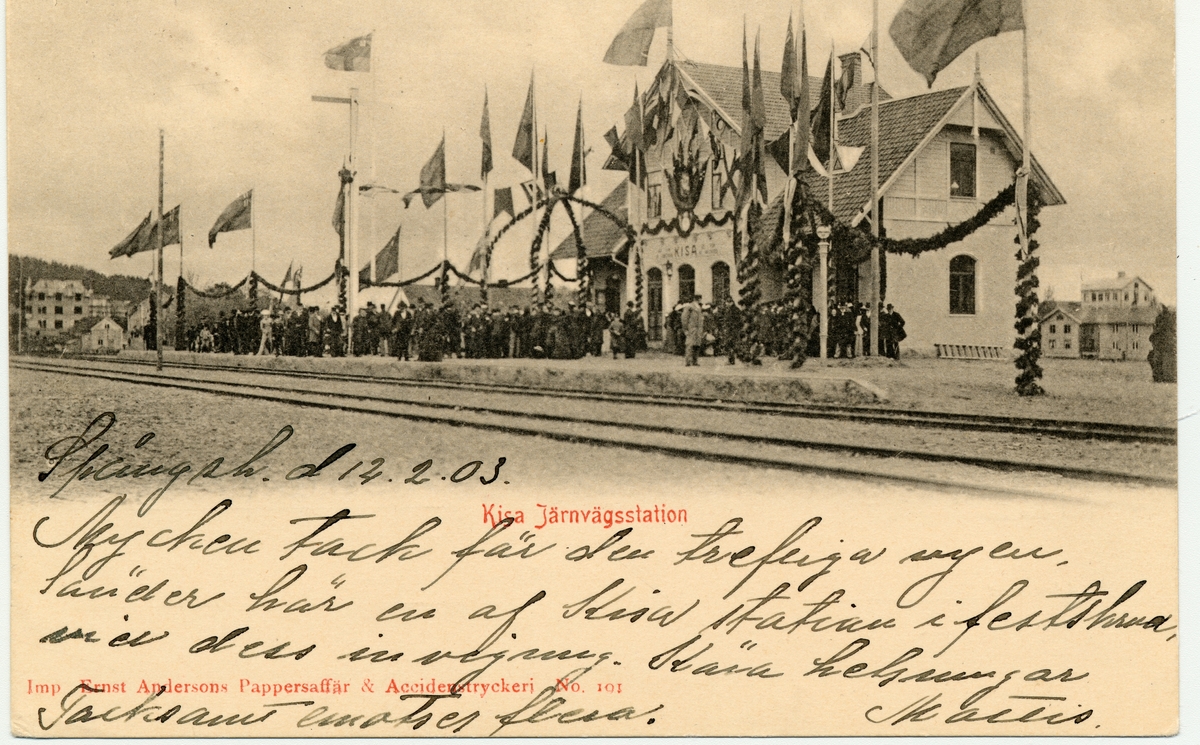 KISA
Spångsh. d 12.2.03.
Kisa Järnvägsstation
Mycken tack för den trefliga vyen,
sänder här en af Kisa station i festskrud,
vid dess invigning. Kära helsningar
Imp Ernst Andersons Pappersaffär & Accidenstryckeri No. 101
Tacksamt emotses flera. Mattis.